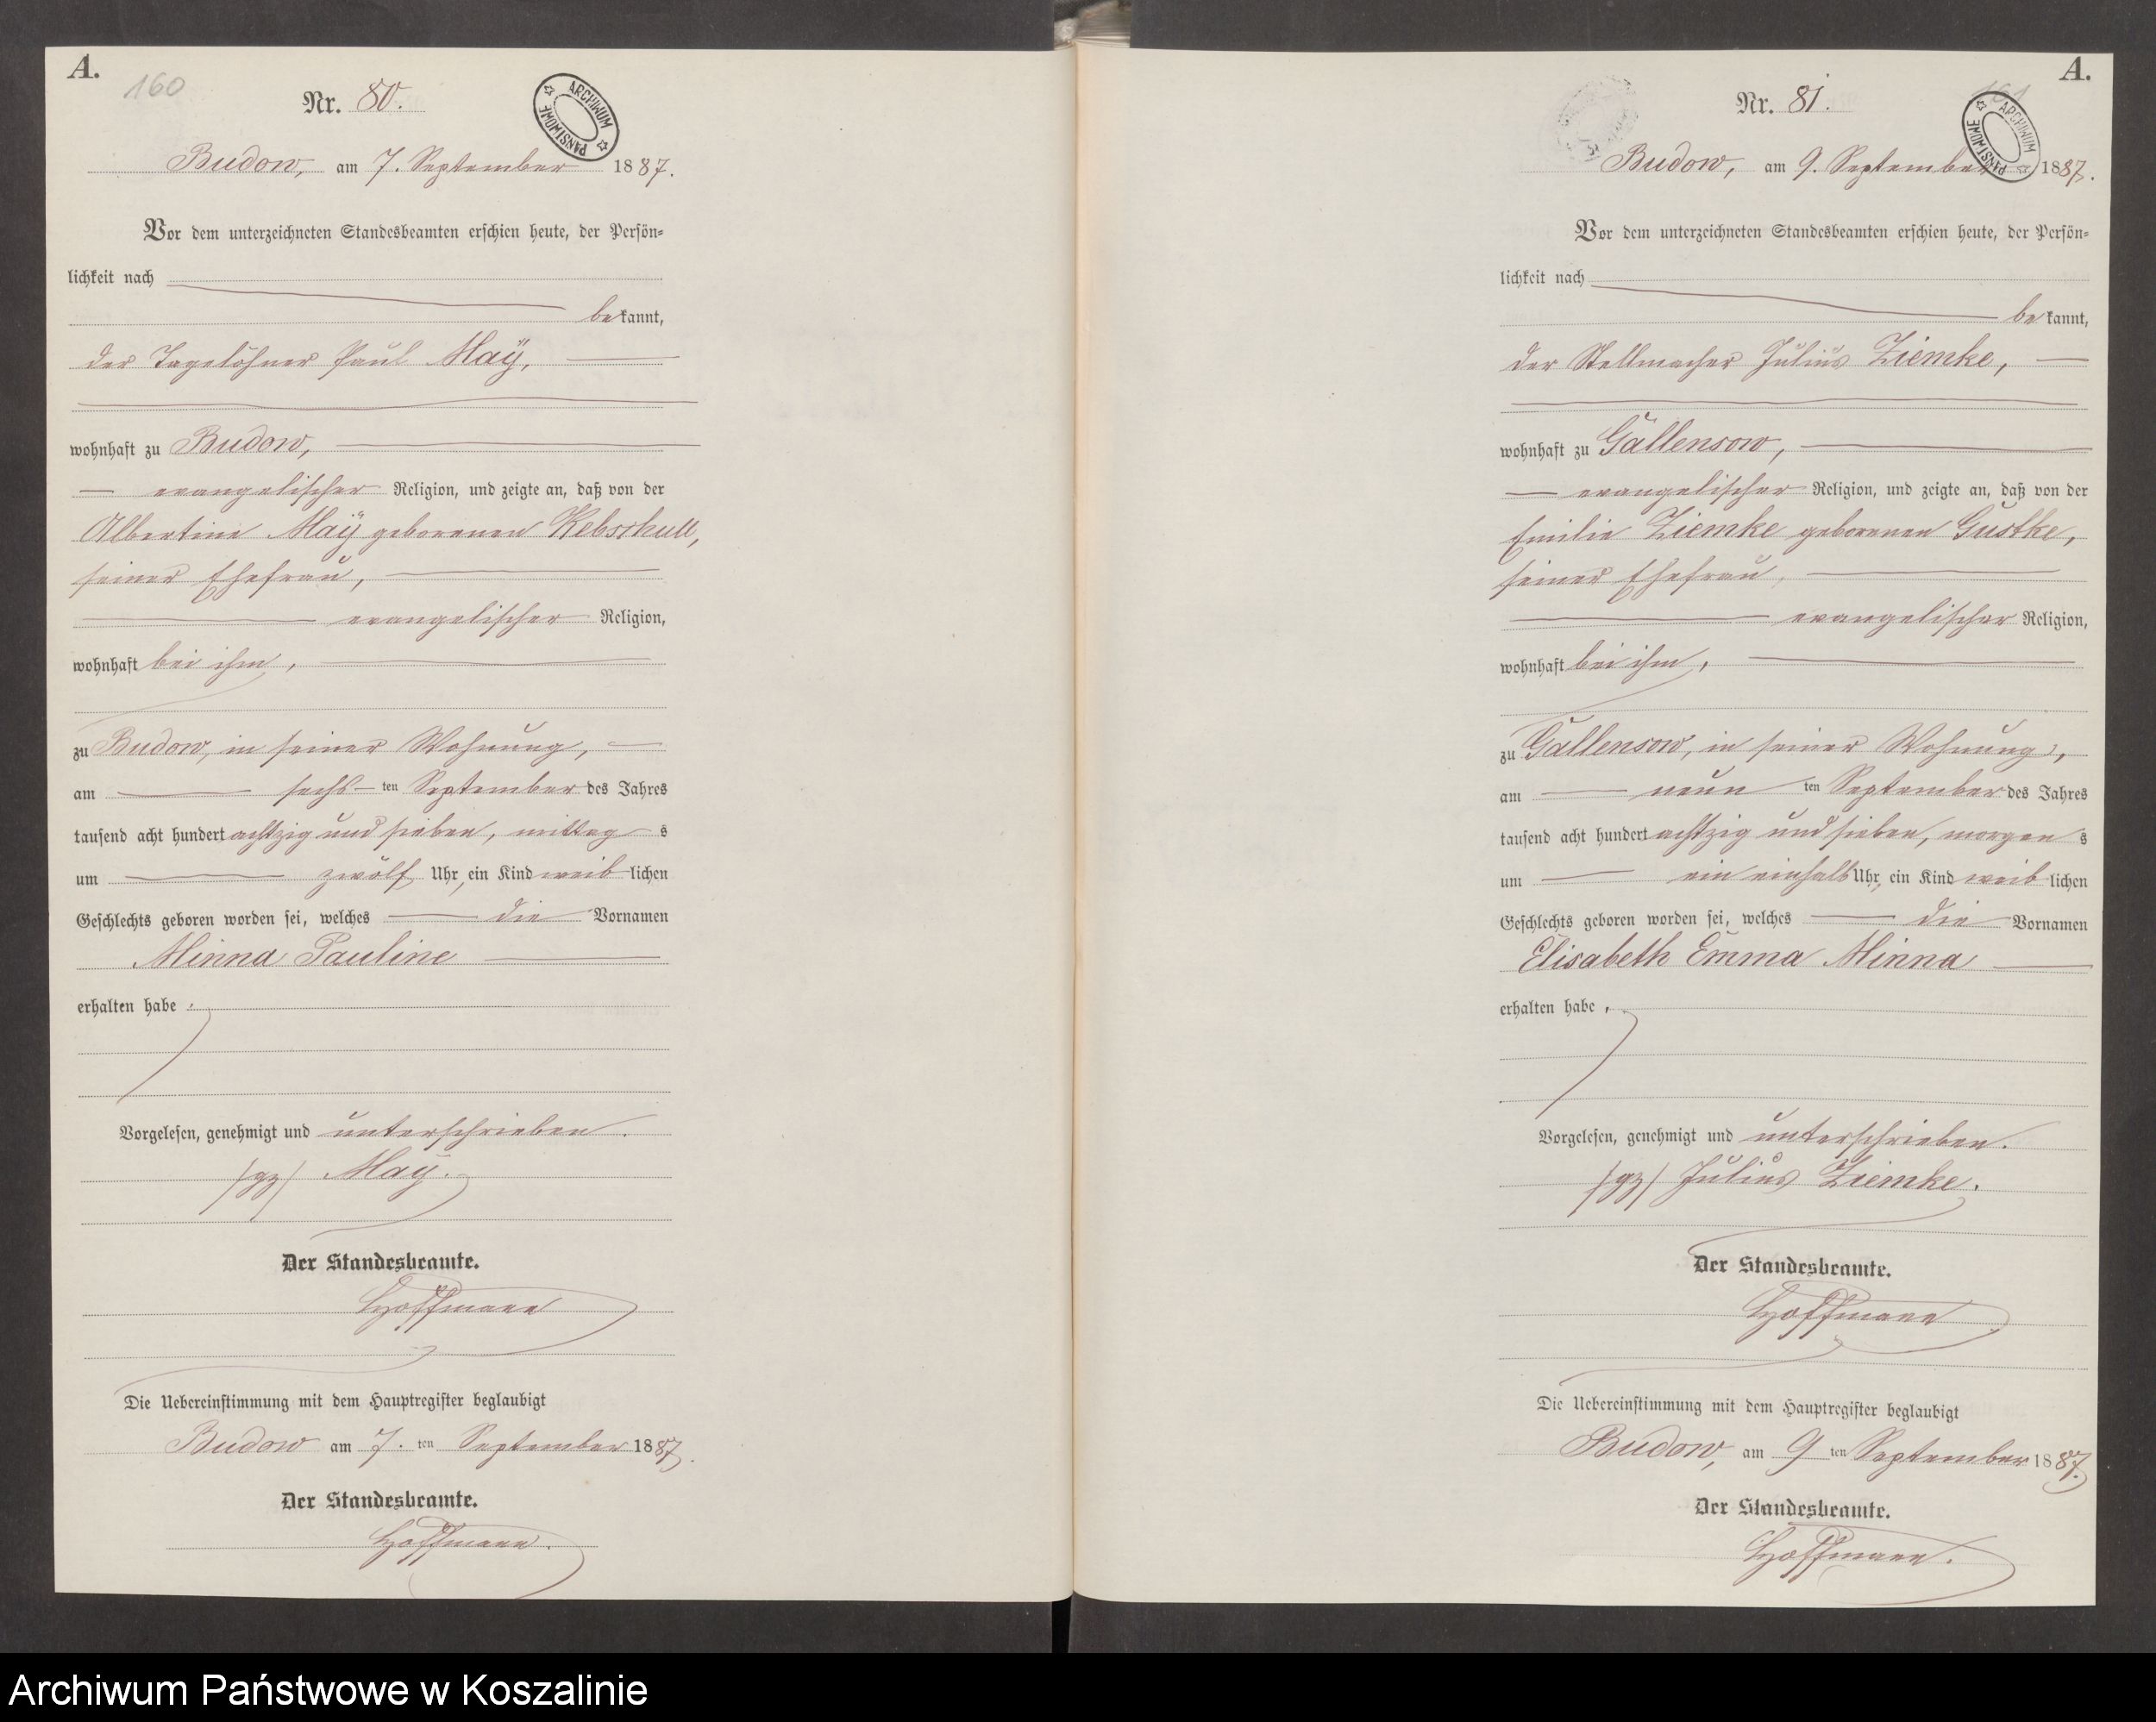 A.
160
Nr. 80.
ARCHIWUM PAŃSTWOWE
Budow, am 7. September 1887.
Vor dem unterzeichneten Standesbeamten erschien heute, der Persön-
lichkeit nach
bekannt,
der Tagelöhner Paul Maÿ,
wohnhaft zu Budow,
evangelischer Religion, und zeigte an, daß von der
Albertine Maÿ geborenen Kebschull,
seiner Ehefrau,
evangelischer Religion,
wohnhaft bei ihm,
zu Budow, in seiner Wohnung,
am sechsten September des Jahres
tausend acht hundert achtzig und sieben, mittags
um zwölf Uhr, ein Kind weiblichen
Geschlechts geboren worden sei, welches die Vornamen
Minna Pauline
erhalten habe.
Vorgelesen, genehmigt und unterschrieben.
/gz/ Maÿ.
Der Standesbeamte.
Hoffmann
Die Uebereinstimmung mit dem Hauptregister beglaubigt
Budow am 7. ten September 1887.
Der Standesbeamte.
Hoffmann.
A.
161
Nr. 81.
ARCHIWUM PAŃSTWOWE
Budow, am 9. September 1887.
Vor dem unterzeichneten Standesbeamten erschien heute, der Persön-
lichkeit nach
bekannt,
der Stellmacher Julius Ziemke,
wohnhaft zu Gallensow,
evangelischer Religion, und zeigte an, daß von der
Emilie Ziemke geborenen Gustke,
seiner Ehefrau,
evangelischer Religion,
wohnhaft bei ihm,
zu Gallensow, in seiner Wohnung,
am neunten September des Jahres
tausend acht hundert achtzig und sieben, morgens
um ein einhalb Uhr, ein Kind weiblichen
Geschlechts geboren worden sei, welches die Vornamen
Elisabeth Emma Minna
erhalten habe.
Vorgelesen, genehmigt und unterschrieben.
/gz/ Julius Ziemke.
Der Standesbeamte.
Hoffmann
Die Uebereinstimmung mit dem Hauptregister beglaubigt
Budow, am 9 ten September 1887.
Der Standesbeamte.
Hoffmann.
Archiwum Państwowe w Koszalinie